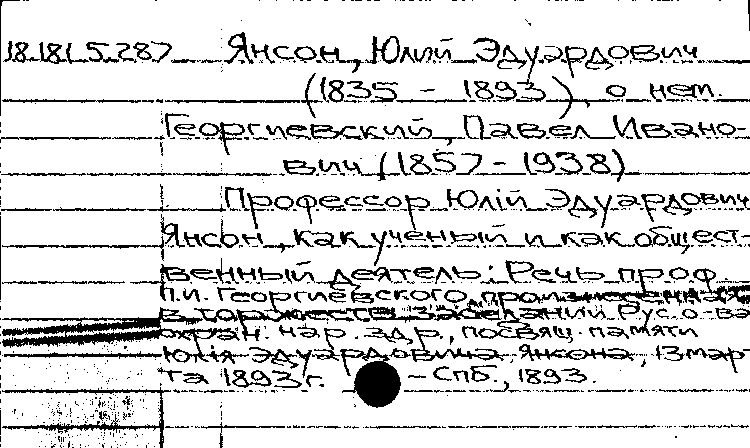 18.181.5.287 Янсон, Юлий Эдуардович
(1835 - 1893), о нем.
Георгиевский, Павел Ивано-
вич (1857-1938)
Профессор Юлій Эдуардович
Янсон, как ученый и как общест-
венный деятель: Речь проф.
П.И. Георгиевского, произнесенная
в торжеств. заседаний Рус. о-ва
охран. нар. здр., посвящ. памяти
Юлія Эдуардовича Янсона, 13 мар-
та 1893 г. - Спб., 1893.